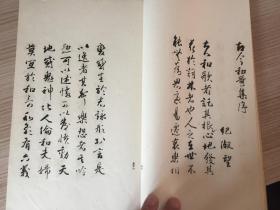 古今和哥集序
紀淑望
夫和歌者託其根於心地發其
花於詞林者也人之在世不
能無為思慮易遷哀樂相
變感生於志詠形於言是
以逸者其聲樂怨者其吟
悲可以述懷可以發憤動天
地感鬼神化人倫和夫婦
莫宜於和哥和哥有六義